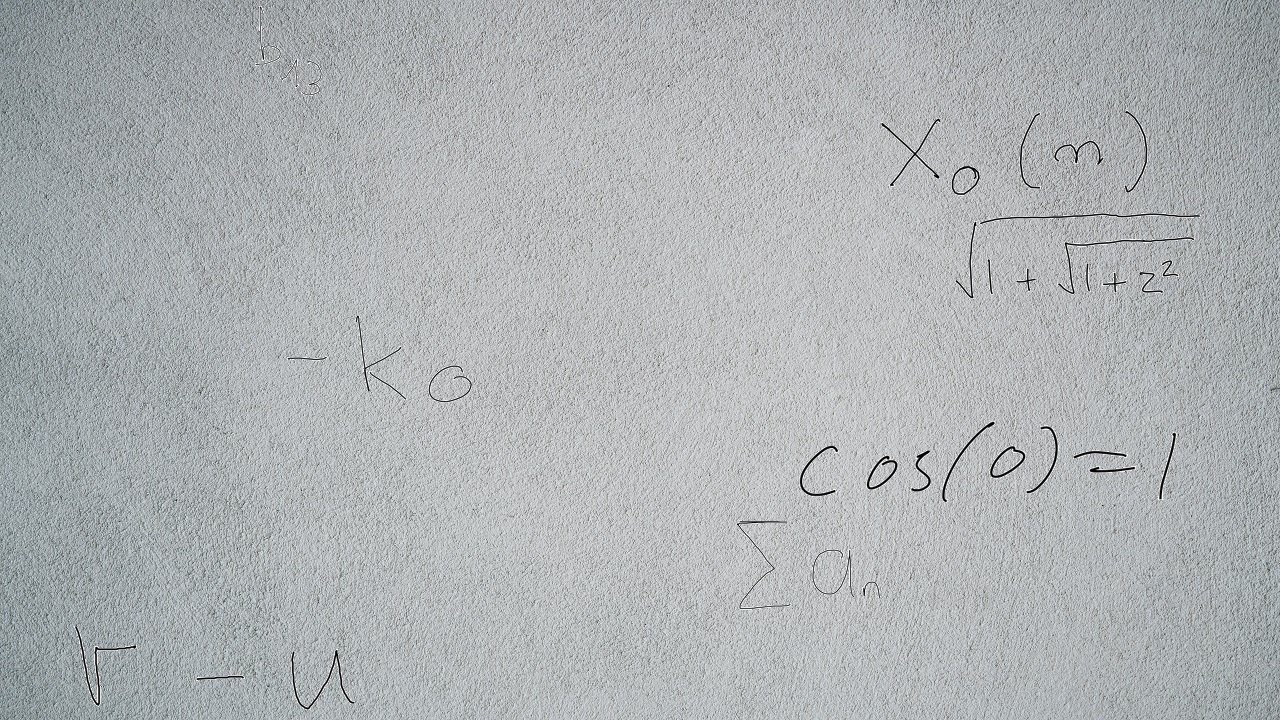 b_{13}
X_0 (m)
\sqrt{1 + \sqrt{1 + z^2}}
-k_0
cos(0) = 1
\sum a_n
r - u